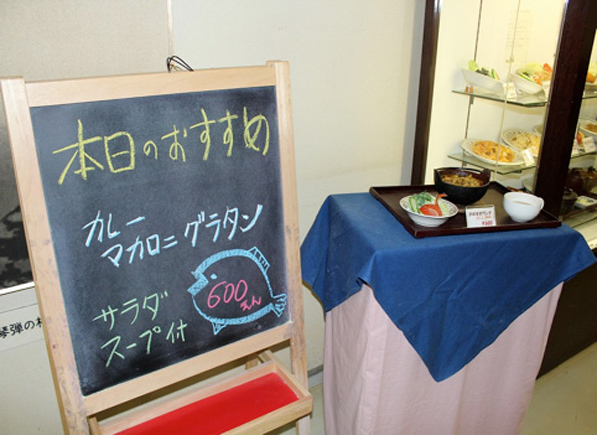 本日のおすすめ
カレー
マカロニグラタン
サラダ
スープ付
600
えん
琴弾の